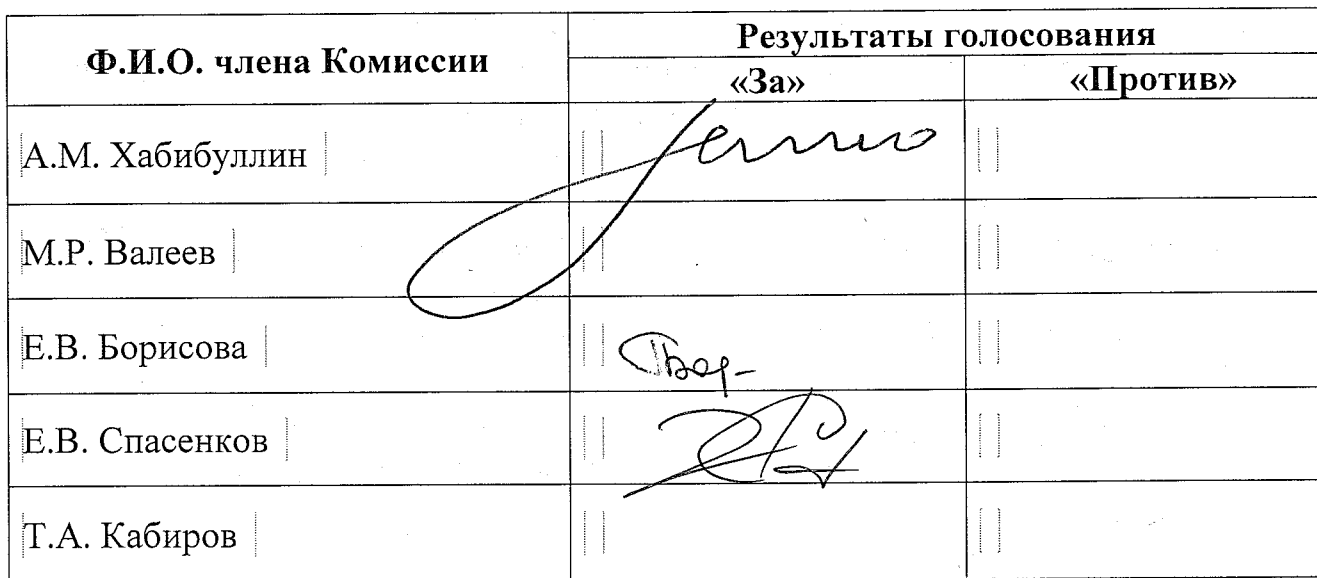 Ф.И.О. члена Комиссии
Результаты голосования
«За»
«Против»
А.М. Хабибуллин
М.Р. Валеев
Е.В. Борисова
Е.В. Спасенков
Т.А. Кабиров